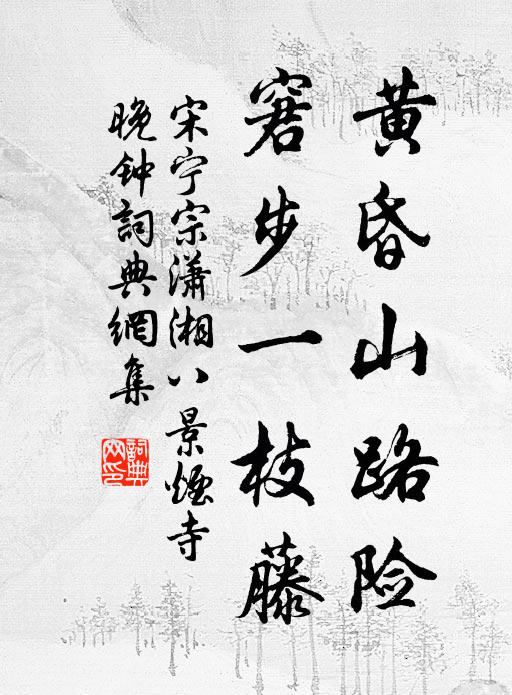 黄昏山路险
窘步一枝藤
宋宁宗潇湘八景烟寺
晚钟詞典網集
詞典網印